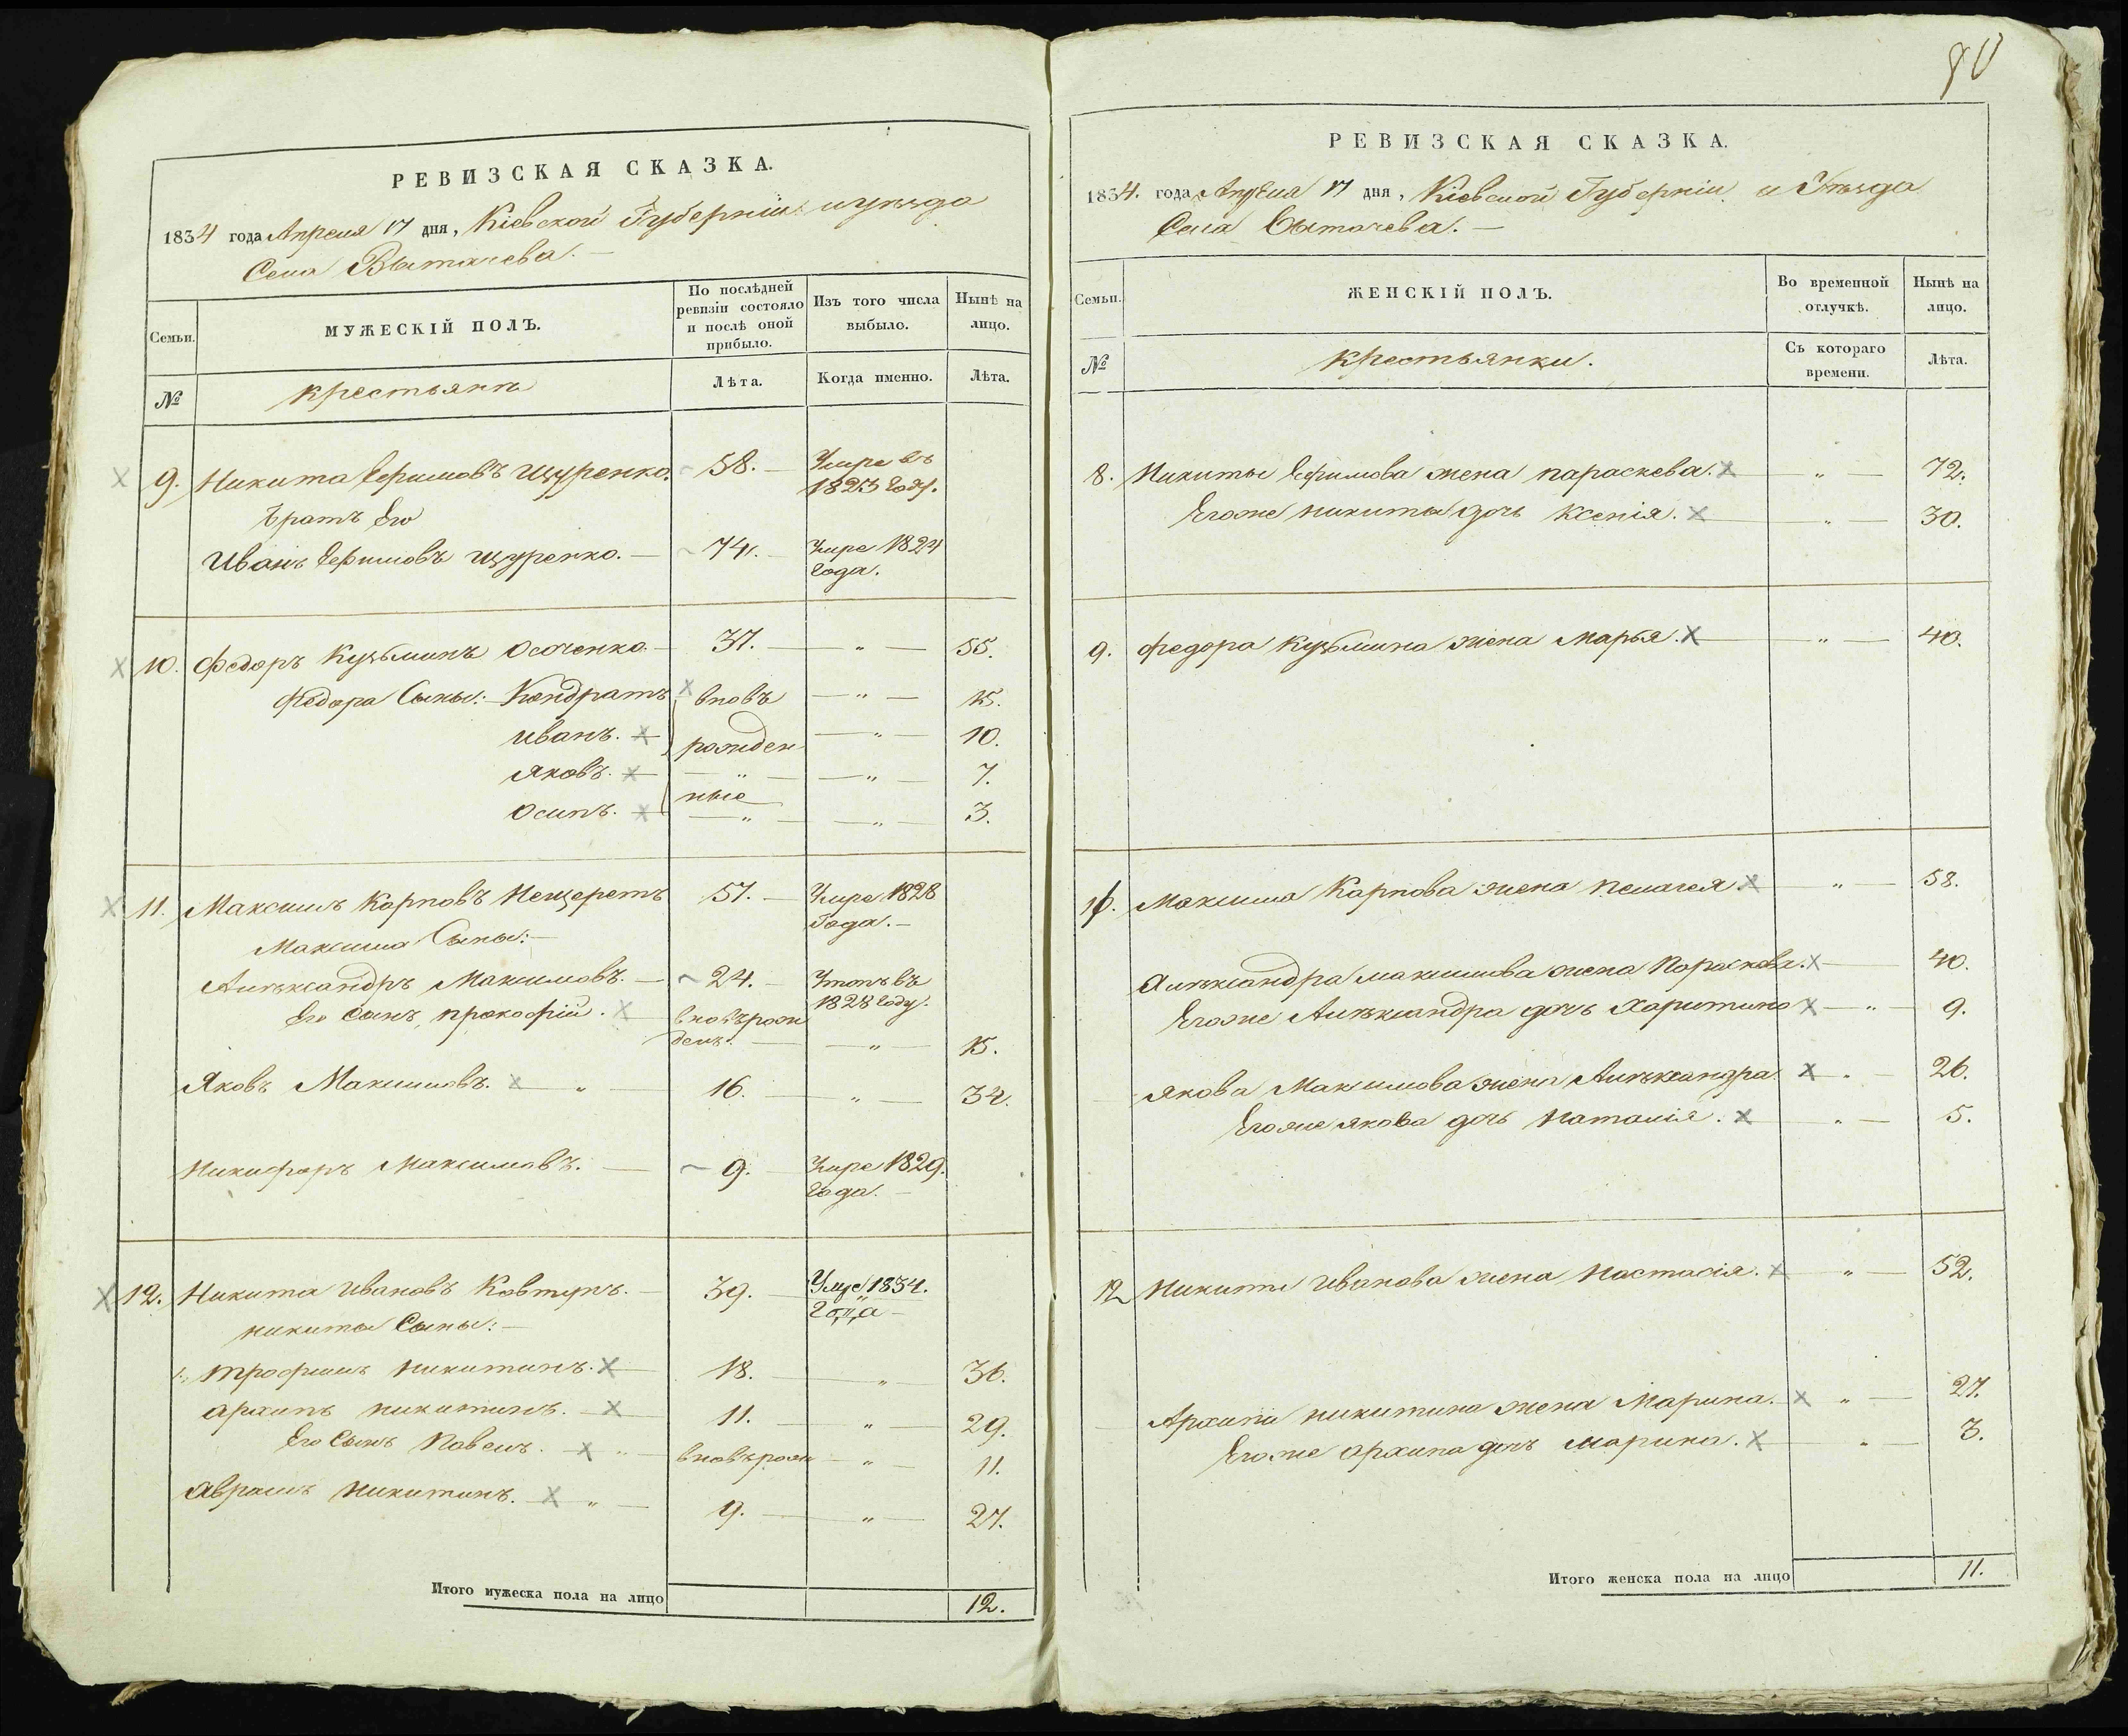 РЕВИЗСКАЯ СКАЗКА.
1834 года Апреля 17 дня, Кіевской Губерніи и уезда
Села Вытачева.
Семьи.
МУЖЕСКІЙ ПОЛЪ.
По послѣдней ревизіи состояло и послѣ оной прибыло.
Изъ того числа выбыло.
Нынѣ на лицо.
№
крестьяне
Лѣта.
Когда именно.
Лѣта.
9. Никита Ефимовъ Щуренко. 58. Умре въ 1823 году.
Братъ Его
Иванъ Ефимовъ Щуренко. 74. Умре 1824 года.
10. Федоръ Кузьминъ Осаченко 37. 55.
Федора Сыны: Кондратъ вновъ 15.
Иванъ. рожден 10.
Яковъ. 7.
Осипъ. ные 3.
11. Максимъ Карповъ Нещеретъ 57. Умре 1828 Года.
Максима Сыны:
Алѣксандръ Максимовъ. 24. Утопъ въ 1828 году.
Его сынъ прокофій. вновърож денъ. 15.
Яковъ Максимовъ. 16. 32.
Никифоръ Максимовъ. 9. Умре 1829. года.
12. Никита Ивановъ Ковтунъ. 39. Умре 1834. Года
никиты Сыны:
Трофимъ Никитинъ. 18. 36.
архипъ никитинъ. 11. 29.
Его Сынъ Павелъ. вновърож 11.
Аврамъ Никитинъ. 9. 27.
Итого мужеска пола на лицо 12.
80
РЕВИЗСКАЯ СКАЗКА.
1834. года Апреля 17 дня, Кіевской Губерніи и Уѣзда
Села Вытачева.
Семьи.
ЖЕНСКІЙ ПОЛЪ.
Во временной отлучкѣ.
Нынѣ на лицо.
№
крестьянки.
Съ котораго времени.
Лѣта.
8. Никиты Ефимова жена параскева. 72.
Егоже никиты дочь Ксенія. 30.
9. Федора Кузьмина жена Марья. 40.
Максима Карпова жена пелагея 58.
Алѣксандра максимова жена Параскева. 40.
Егоже Алѣксандра дочь Харитина 9.
Якова Максимова жена Алѣксандра. 26.
Егоже якова дочь Наталія. 5.
12 Никиты Иванова жена Настасія. 52.
Архипа никитина жена Марина. 27.
Егоже архипа дочь марина. 3.
Итого женска пола на лицо 11.